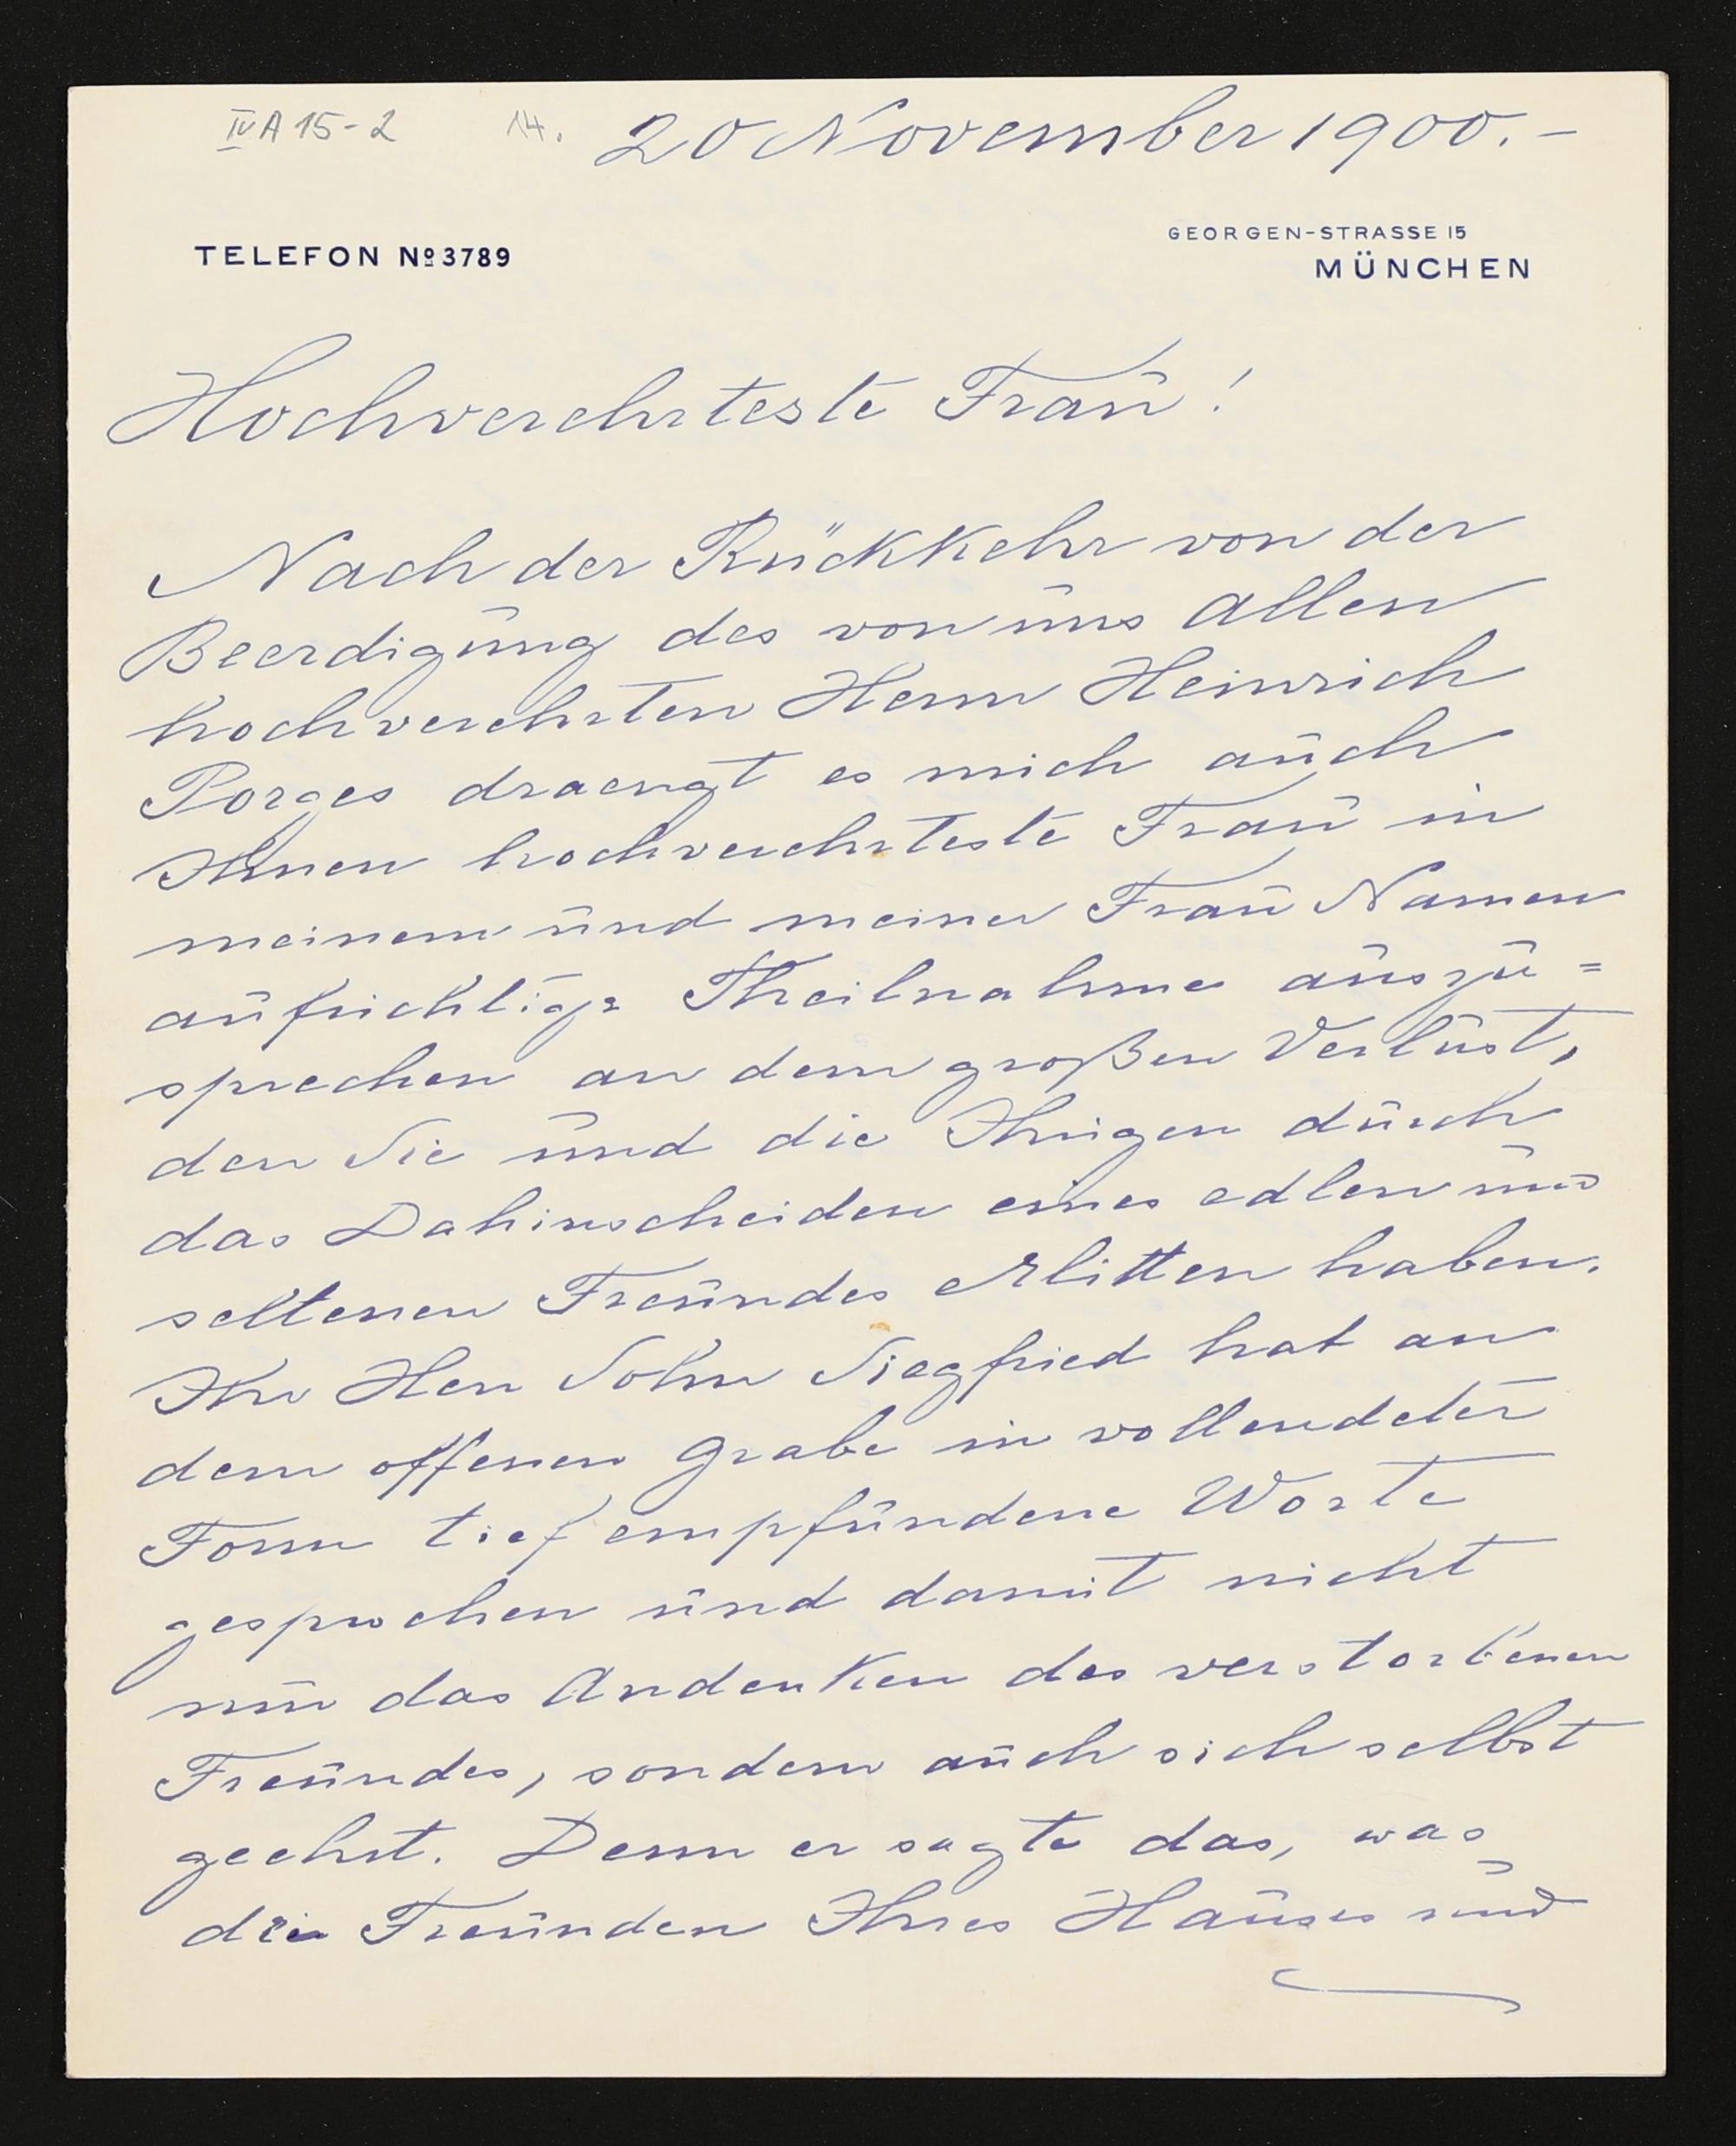 IV A 15-2 14. 20 November 1900.-
TELEFON Nº 3789
GEORGEN-STRASSE 15
MÜNCHEN
Hochverehrteste Frau!
Nach der Rückkehr von der
Beerdigung des von uns allen
hochverehrten Herrn Heinrich
Porges draengt es mich auch
Ihnen hochverehrteste Frau in
meinem und meiner Frau Namen
aufrichtige Theilnahme auszu=
sprechen an dem großen Verlust,
den Sie und die Ihrigen durch
das Dahinscheiden eines edlen und
seltenen Freundes erlitten haben.
Ihr Herr Sohn Siegfried hat an
dem offenen Grabe in vollendeter
Form tief empfundene Worte
gesprochen und damit nicht
nur das Andenken des verstorbenen
Freundes, sondern auch sich selbst
geehrt. Denn er sagte das, was
die Freunden Ihres Hauses und